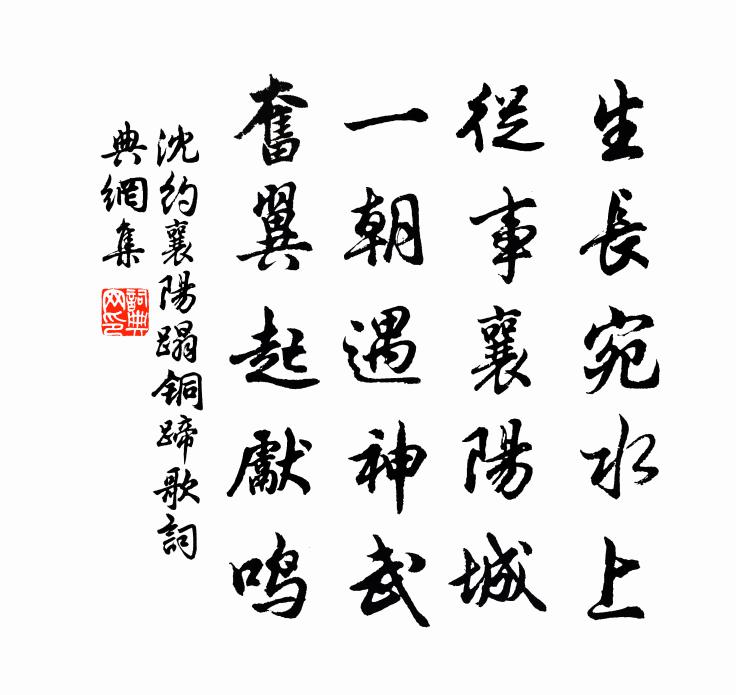 生長宛水上
從事襄陽城
一朝遇神武
奮翼起獻鳴
沈約襄陽蹋铜蹄歌詞
典網集
詞典网印